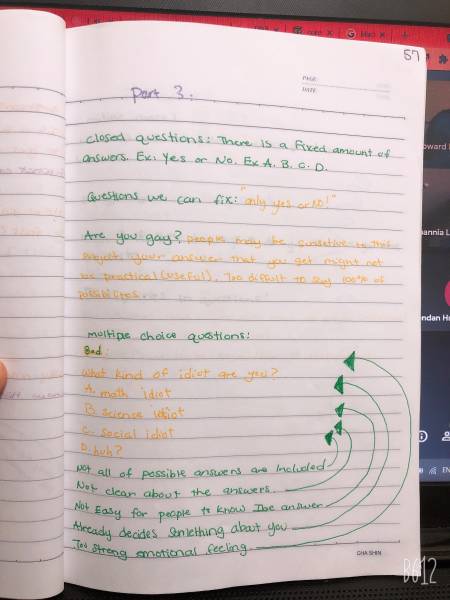 57
PAGE:
DATE:
Part 3:
closed questions: There is a fixed amount of
answers. Ex. Yes or No. Ex A. B. C. D.
Questions we can fix: "only yes or No!"
Are you gay? people may be sensetive to this
subject. your answer that you get might not
be practical (useful). Too difficult to say 100% of
possibilites.
multiple choice questions:
Bad:
What kind of idiot are you?
A. math idiot
B. science idiot
C. social idiot
D. huh?
Not all of possible answers are included
Not clear about the answers
Not Easy for people to know the answer
Already decides something about you
Too strong emotional feeling
GHA SHIN
B612
oward
annia L
ndan Ha
EN